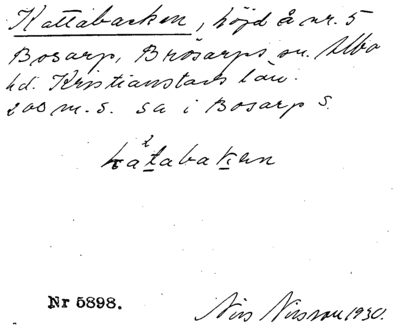 Kattabacken, höjd å nr. 5
Bosarp, Brösarps sn. Albo
hd. Kristianstads län.
200 m. S. sa i Bosarp S.
katabaken
2
Nr 5898.
Nils Nilsson 1930.